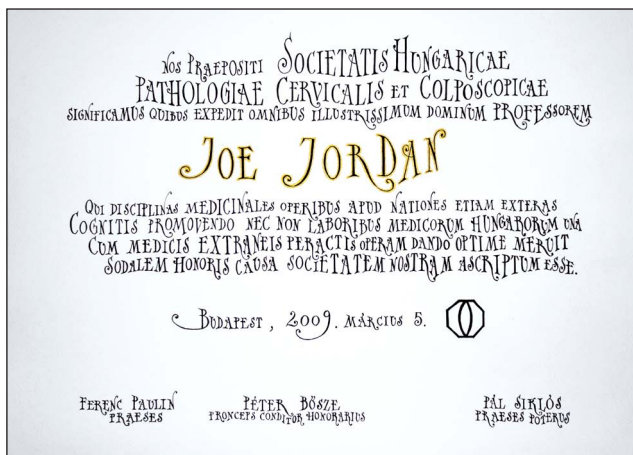 NOS PRAEPOSITI SOCIETATIS HUNGARICAE
PATHOLOGIAE CERVICALIS ET COLPOSCOPICAE
SIGNIFICAMUS QUIBUS EXPEDIT OMNIBUS ILLUSTRISSIMUM DOMINUM PROFESSOREM
JOE JORDAN
QUI DISCIPLINAS MEDICINALES OPERIBUS APUD NATIONES ETIAM EXTERAS
COGNITIS PROMOVENDO NEC NON LABORIBUS MEDICORUM HUNGARORUM UNA
CUM MEDICIS EXTRANEIS PERACTIS OPERAM DANDO OPTIME MERUIT
SODALEM HONORIS CAUSA SOCIETATEM NOSTRAM ASCRIPTUM ESSE.
BUDAPEST, 2009. MÁRCIUS 5.
FERENC PAULIN PÉTER BŐSZE PÁL SIKLÓS
PRAESES PRONCEPS CONDITUR HONORARIUS PRAESES POTERUS